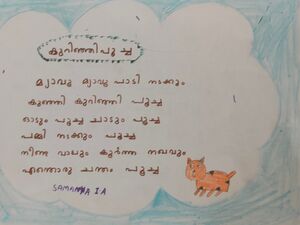 കുറിഞ്ഞിപൂച്ച
മ്യാവൂ മ്യാവൂ പാടി നടക്കും
കുഞ്ഞി കുറിഞ്ഞി പൂച്ച
ഓടും പൂച്ച ചാടും പൂച്ച
പമ്മി നടക്കും പൂച്ച
നീണ്ട വാലും കൂർത്ത നഖവും
എന്തൊരു ചന്തം പൂച്ച
SAMANHA I A